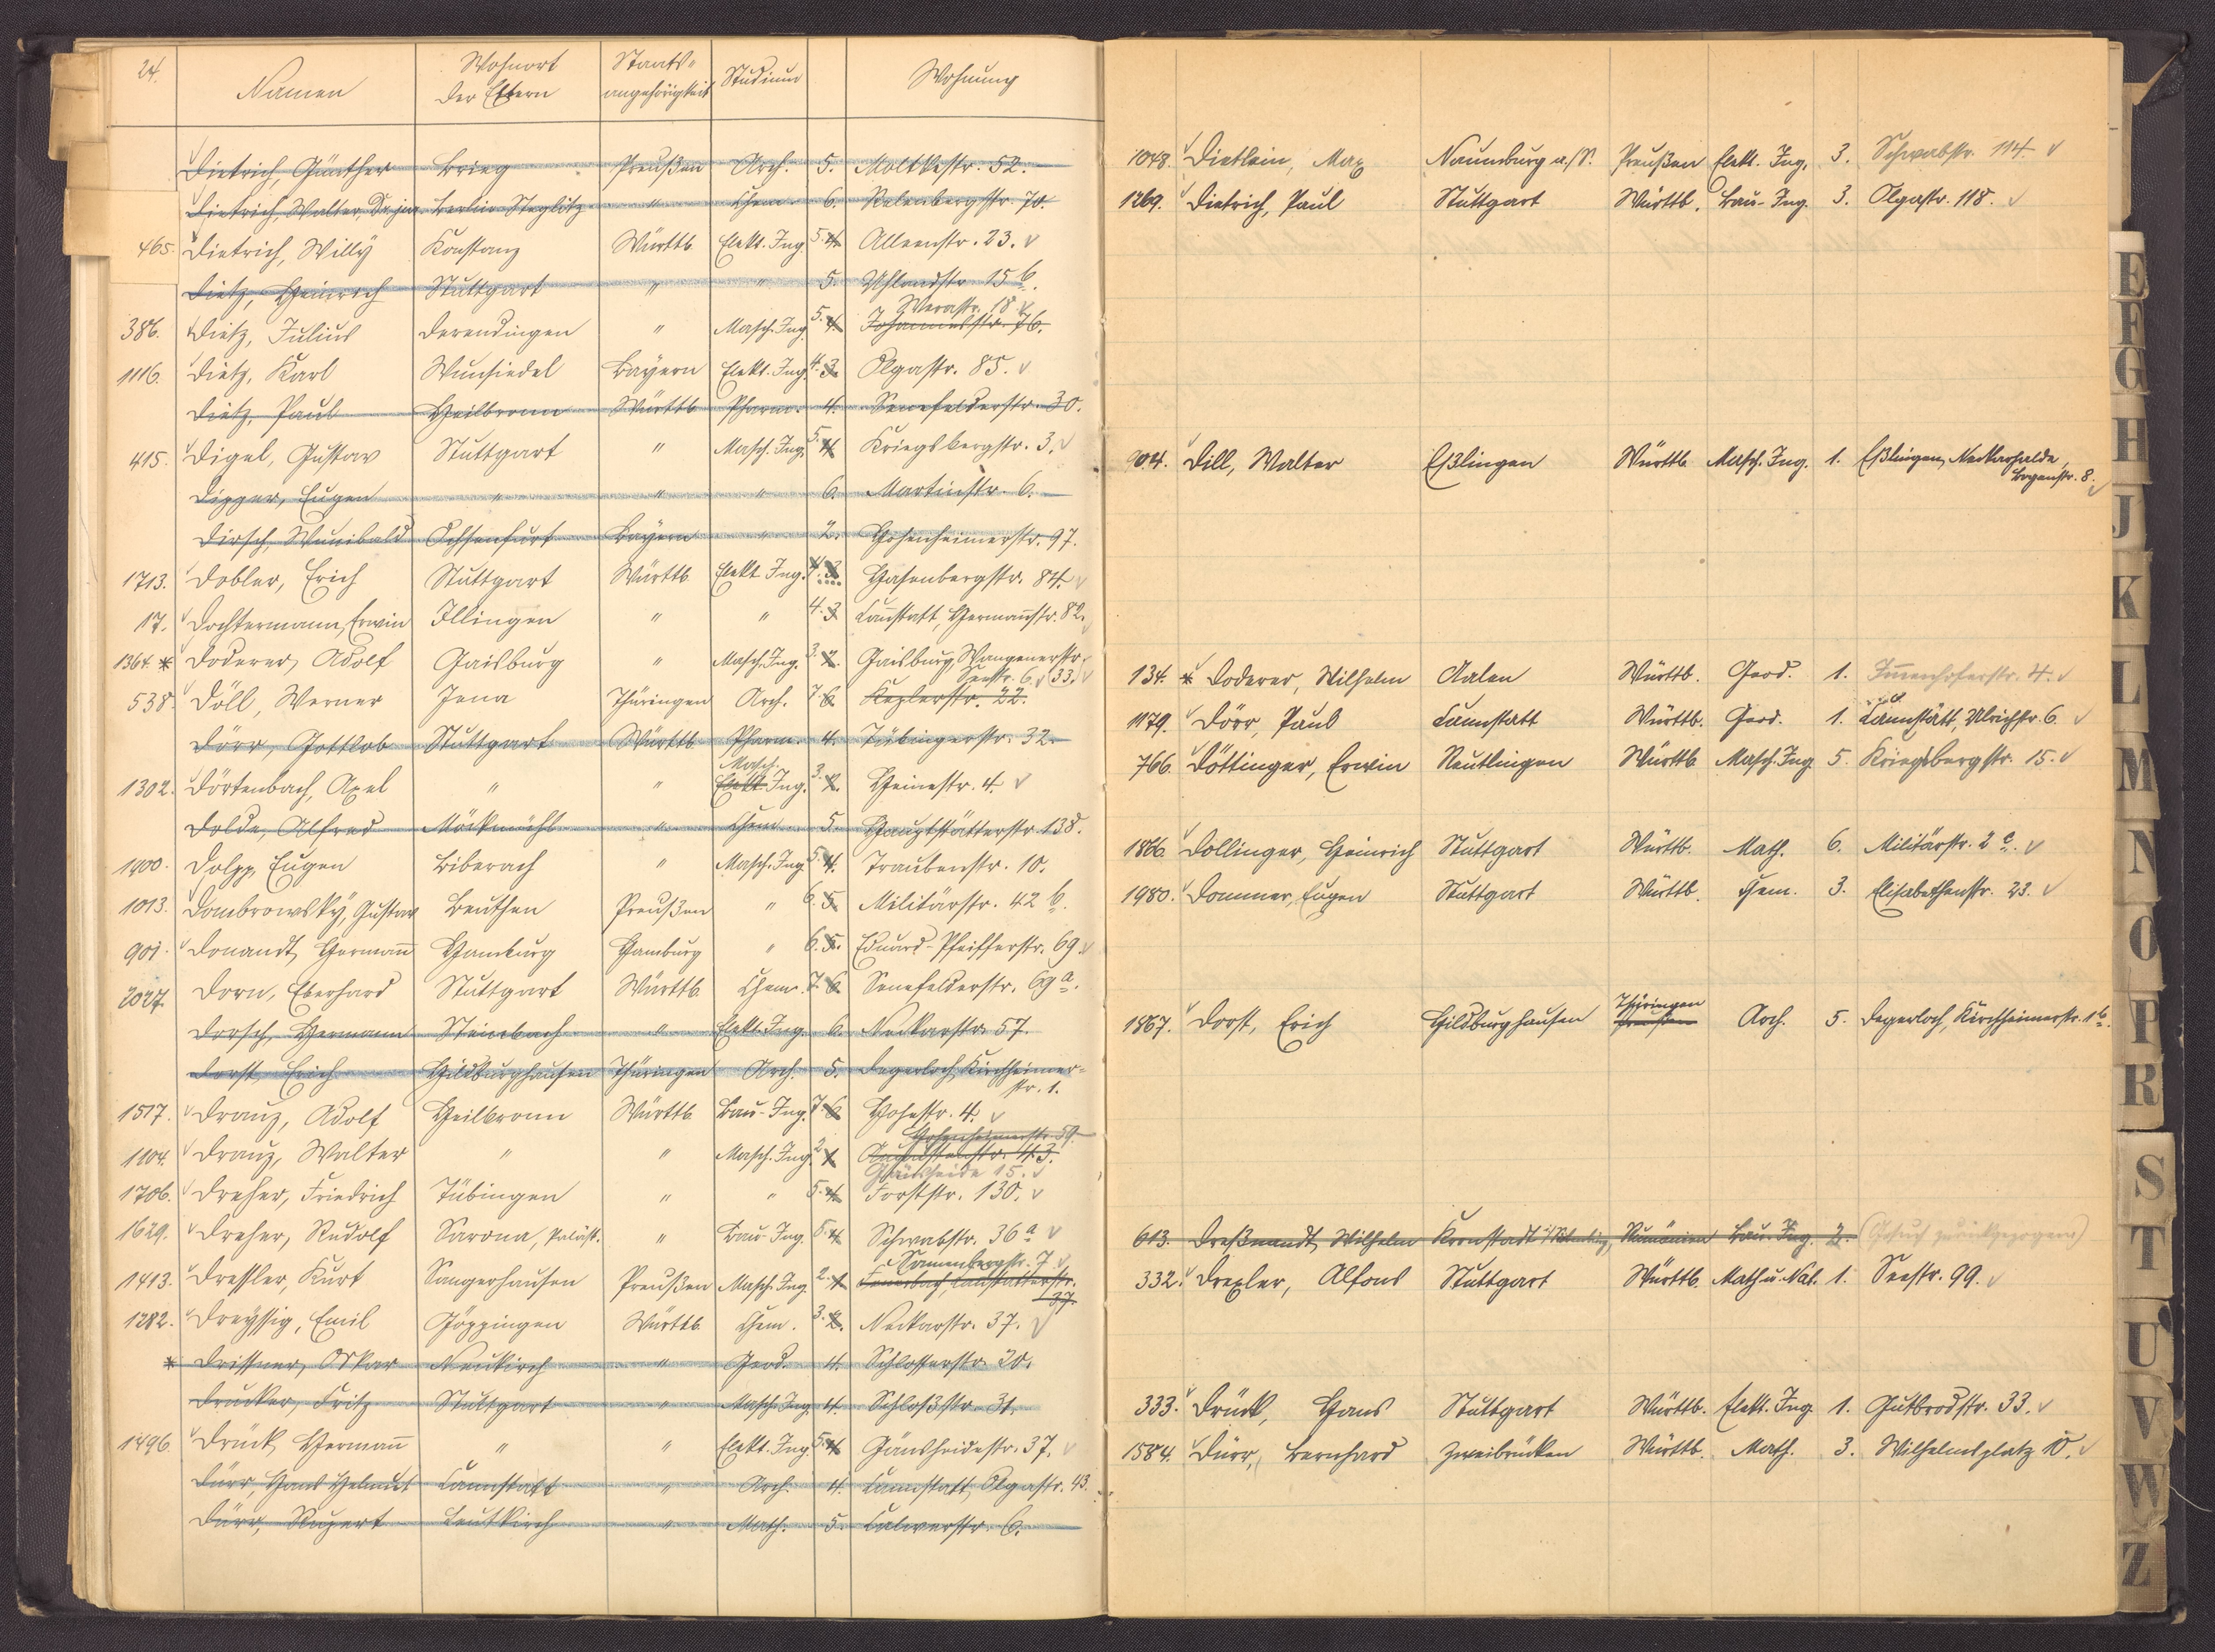 24.
Namen Wohnort der Eltern Staats-angehörigkeit Studium Wohnung
Dietrich, Günther Brieg Preußen Arch. 5. Moltkestr. 52.
Dietrich, Walter, Berlin-Steglitz " Chem. 6. Relenbergstr. 70.
465. Dietrich, Willy Konstanz Württb. Elekt. Ing. 5. 4. Alleenstr. 23.
Dietz, Heinrich Stuttgart " " 5. Uhlandstr. 15 b.
Werastr. 18
386. Dietz, Julius Derendingen " Masch. Ing. 5. 4. Johannesstr. 76.
1116. Dietz, Karl Wunsiedel Bayern Elekt. Ing. 4. 3. Olgastr. 85.
Dietz, Paul Heilbronn Württb. Pharm. 4. Senefelderstr. 30.
415. Digel, Gustav Stuttgart " Masch. Ing. 5. 4. Kriegsbergstr. 3.
Dipper, Eugen " " " 6. Martinstr. 6.
Dirsch, Wunibald Ochsenfurt Bayern " 2. Hohenheimerstr. 97.
1713. Dobler, Erich Stuttgart Württb. Elekt. Ing. 4. 3. Hasenbergstr. 84.
17. Dochtermann, Erwin Illingen " " 4. 3 Cannstatt, Hermannstr. 82.
1364. * Doderer, Adolf Gaisburg " Masch. Ing. 3. 2. Gaisburg, Wangenerstr. 33.
Seestr. 6.
538. Döll, Werner Jena Thüringen Arch. 7. 6. Keplerstr. 22.
Dörr, Gottlob Stuttgart Württb. Pharm. 4. Tübingerstr. 32.
Masch.
1302. Dörtenbach, Axel " " Elekt. Ing. 3. 2. Heinestr. 4.
Dolde, Alfred Möckmühl " Chem. 5. Hauptstätterstr. 138.
1400. Dolpp, Eugen Biberach " Masch. Ing. 5. 4. Traubenstr. 10.
1013. Dombrowsky, Gustav Beuthen Preußen " 6. 5. Militärstr. 42 b.
901. Donandt, Hermann Hamburg Hamburg " 6. 5. Eduard-Pfeifferstr. 69.
2027. Dorn, Eberhard Stuttgart Württb. Chem. 7. 6. Senefelderstr. 69 a.
Dorsch, Hermann Steinbach " Elekt. Ing. 6. Neckarstr. 57.
Dorst, Erich Hildburghausen Thüringen Arch. 5. Degerloch, Kirchheimer-
str. 1.
1517. Drauz, Adolf Heilbronn Württb. Bau-Ing. 7. 6. Hohestr. 4.
Hohenheimerstr. 59.
1104. Drauz, Walter " " Masch. Ing. 2. 1. Augustenstr. 43.
Gänsheide 15.
1706. Dreher, Friedrich Tübingen " " 5. 4. Forststr. 130.
1629. Dreher, Rudolf Sarona, Paläst. " Bau-Ing. 5. 4. Schwabstr. 36 a
7
1413. Dressler, Kurt Sangerhausen Preußen Masch. Ing. 2. 1. Feuerbach, Cannstatterstr.
37.
1282. Dreyssig, Emil Göppingen Württb. Chem. 3. 2. Neckarstr. 37.
* Drissner, Oskar Neukirch " Geod. 4. Schlosserstr. 20.
Drucker, Fritz Stuttgart " Masch. Ing. 4. Schloßstr. 31.
1496. Drück, Hermann " " Elekt. Ing. 5. 4. Gänsheidestr. 37.
Dürr, Hans Helmut Cannstatt " Arch. 4. Cannstatt, Olgastr. 43.
Dürr, Rupert Leutkirch " Math. 5. Calwerstr. 6.
1048. Dietlein, Max Naumburg a./S. Preußen Elekt. Ing. 3. Schwabstr. 114.
1269. Dietrich, Paul Stuttgart Württb. Bau-Ing. 3. Olgastr. 118.
904. Dill, Walter Eßlingen Württb. Masch. Ing. 1. Eßlingen, Neckarhalde,
8.
134. * Doderer, Wilhelm Aalen Württb. Geod. 1. Immenhoferstr. 4.
1179. Dörr, Paul Cannstatt Württb. Geod. 1. Cannstatt, Ulrichstr. 6.
766. Döttinger, Erwin Reutlingen Württb. Masch. Ing. 5. Kriegsbergstr. 15.
1866. Dollinger, Heinrich Stuttgart Württb. Math. 6. Militärstr. 2 c.
1980. Dommer, Eugen Stuttgart Württb. Chem. 3. Elisabethenstr. 23.
Thüringen
1867. Dorst, Erich Hildburghausen Preußen Arch. 5. Degerloch, Kirchheimerstr. 1 b.
613. Dreßnandt, Wilhelm Kronstadt Rumänien Bau. Ing. 2. (Gesuch zurückgezogen)
332. Drexler, Alfons Stuttgart Württb. Math u. Nat. 1. Seestr. 99.
333. Drück, Hans Stuttgart Württb. Elekt. Ing. 1. Gutbrodstr. 33.
1584. Dürr, Bernhard Zweibrücken Württb. Math. 3. Wilhelmsplatz 10.
E
F
G
H
J
K
L
M
N
O
P
R
S
T
U
V
W
Z